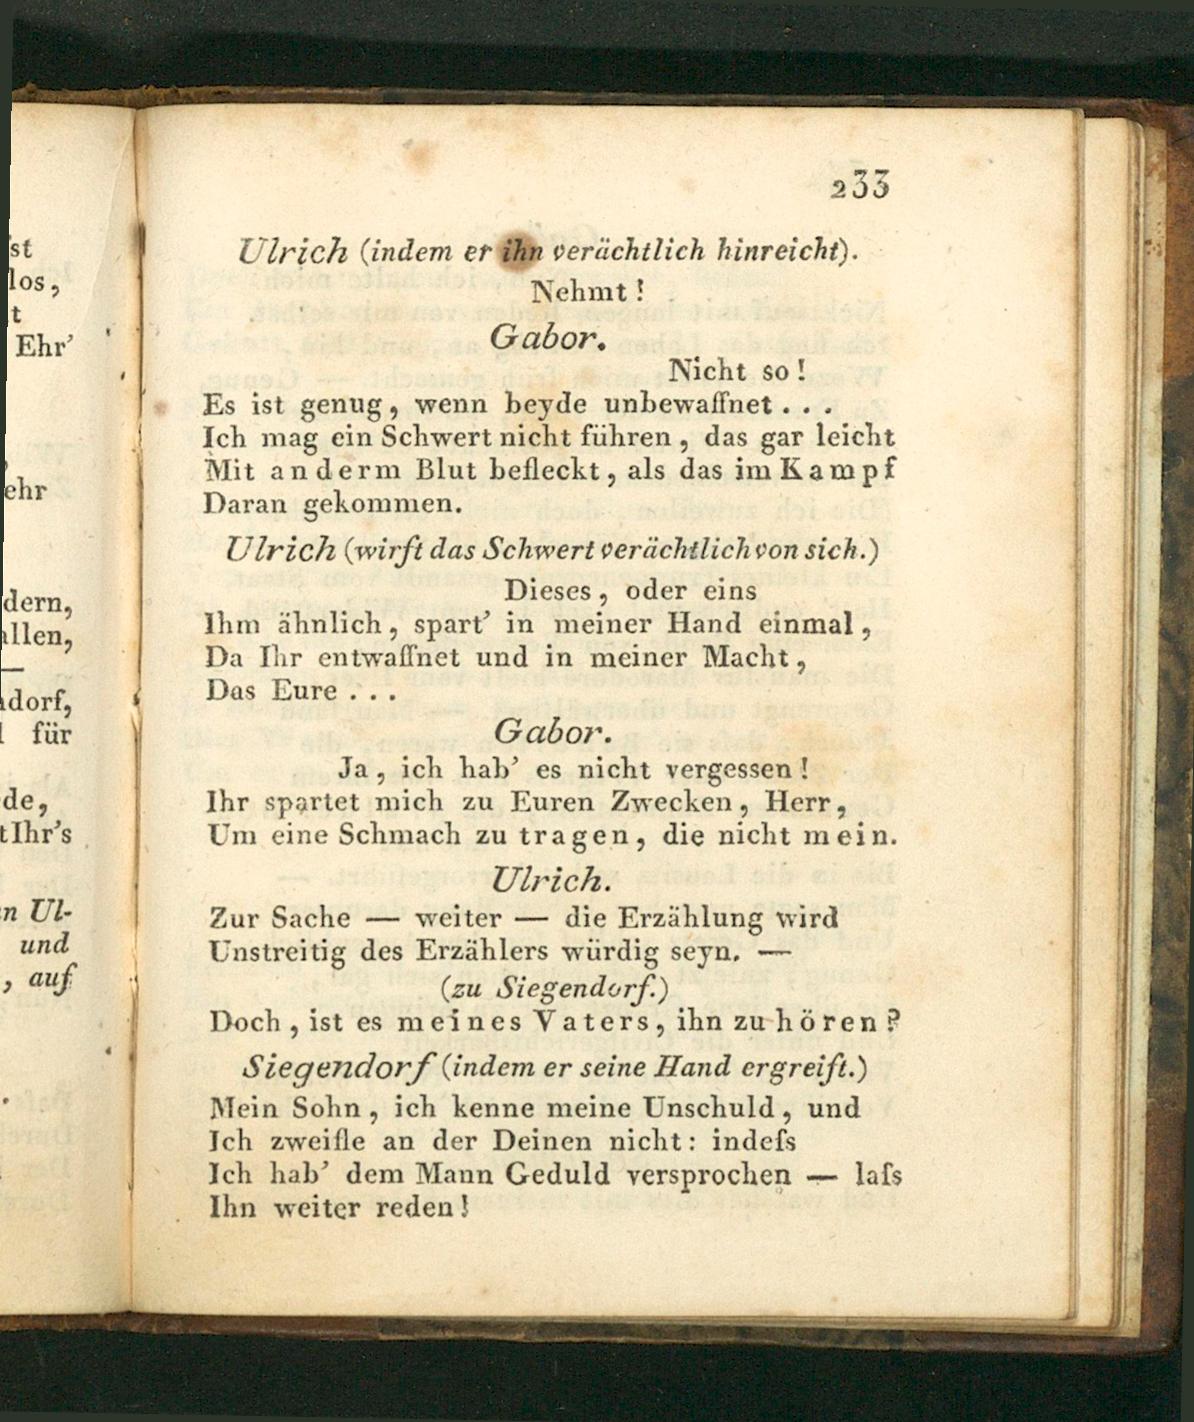 st
los,
t
Ehr’
ehr
dern,
allen,
—
dorf,
für
de,
tIhr’s
n Ul-
und
, auf
233
Ulrich (indem er ihn verächtlich hinreicht).
Nehmt!
Gabor.
Nicht so!
Es ist genug, wenn beyde unbewaffnet...
Ich mag ein Schwert nicht führen, das gar leicht
Mit anderm Blut befleckt, als das im Kampf
Daran gekommen.
Ulrich (wirft das Schwert verächtlich von sich.)
Dieses, oder eins
Ihm ähnlich, spart’ in meiner Hand einmal,
Da Ihr entwaffnet und in meiner Macht,
Das Eure...
Gabor.
Ja, ich hab’ es nicht vergessen!
Ihr spartet mich zu Euren Zwecken, Herr,
Um eine Schmach zu tragen, die nicht mein.
Ulrich.
Zur Sache — weiter — die Erzählung wird
Unstreitig des Erzählers würdig seyn. —
(zu Siegendorf.)
Doch, ist es meines Vaters, ihn zu hören?
Siegendorf (indem er seine Hand ergreift.)
Mein Sohn, ich kenne meine Unschuld, und
Ich zweifle an der Deinen nicht: indeſs
Ich hab’ dem Mann Geduld versprochen — laſs
Ihn weiter reden!